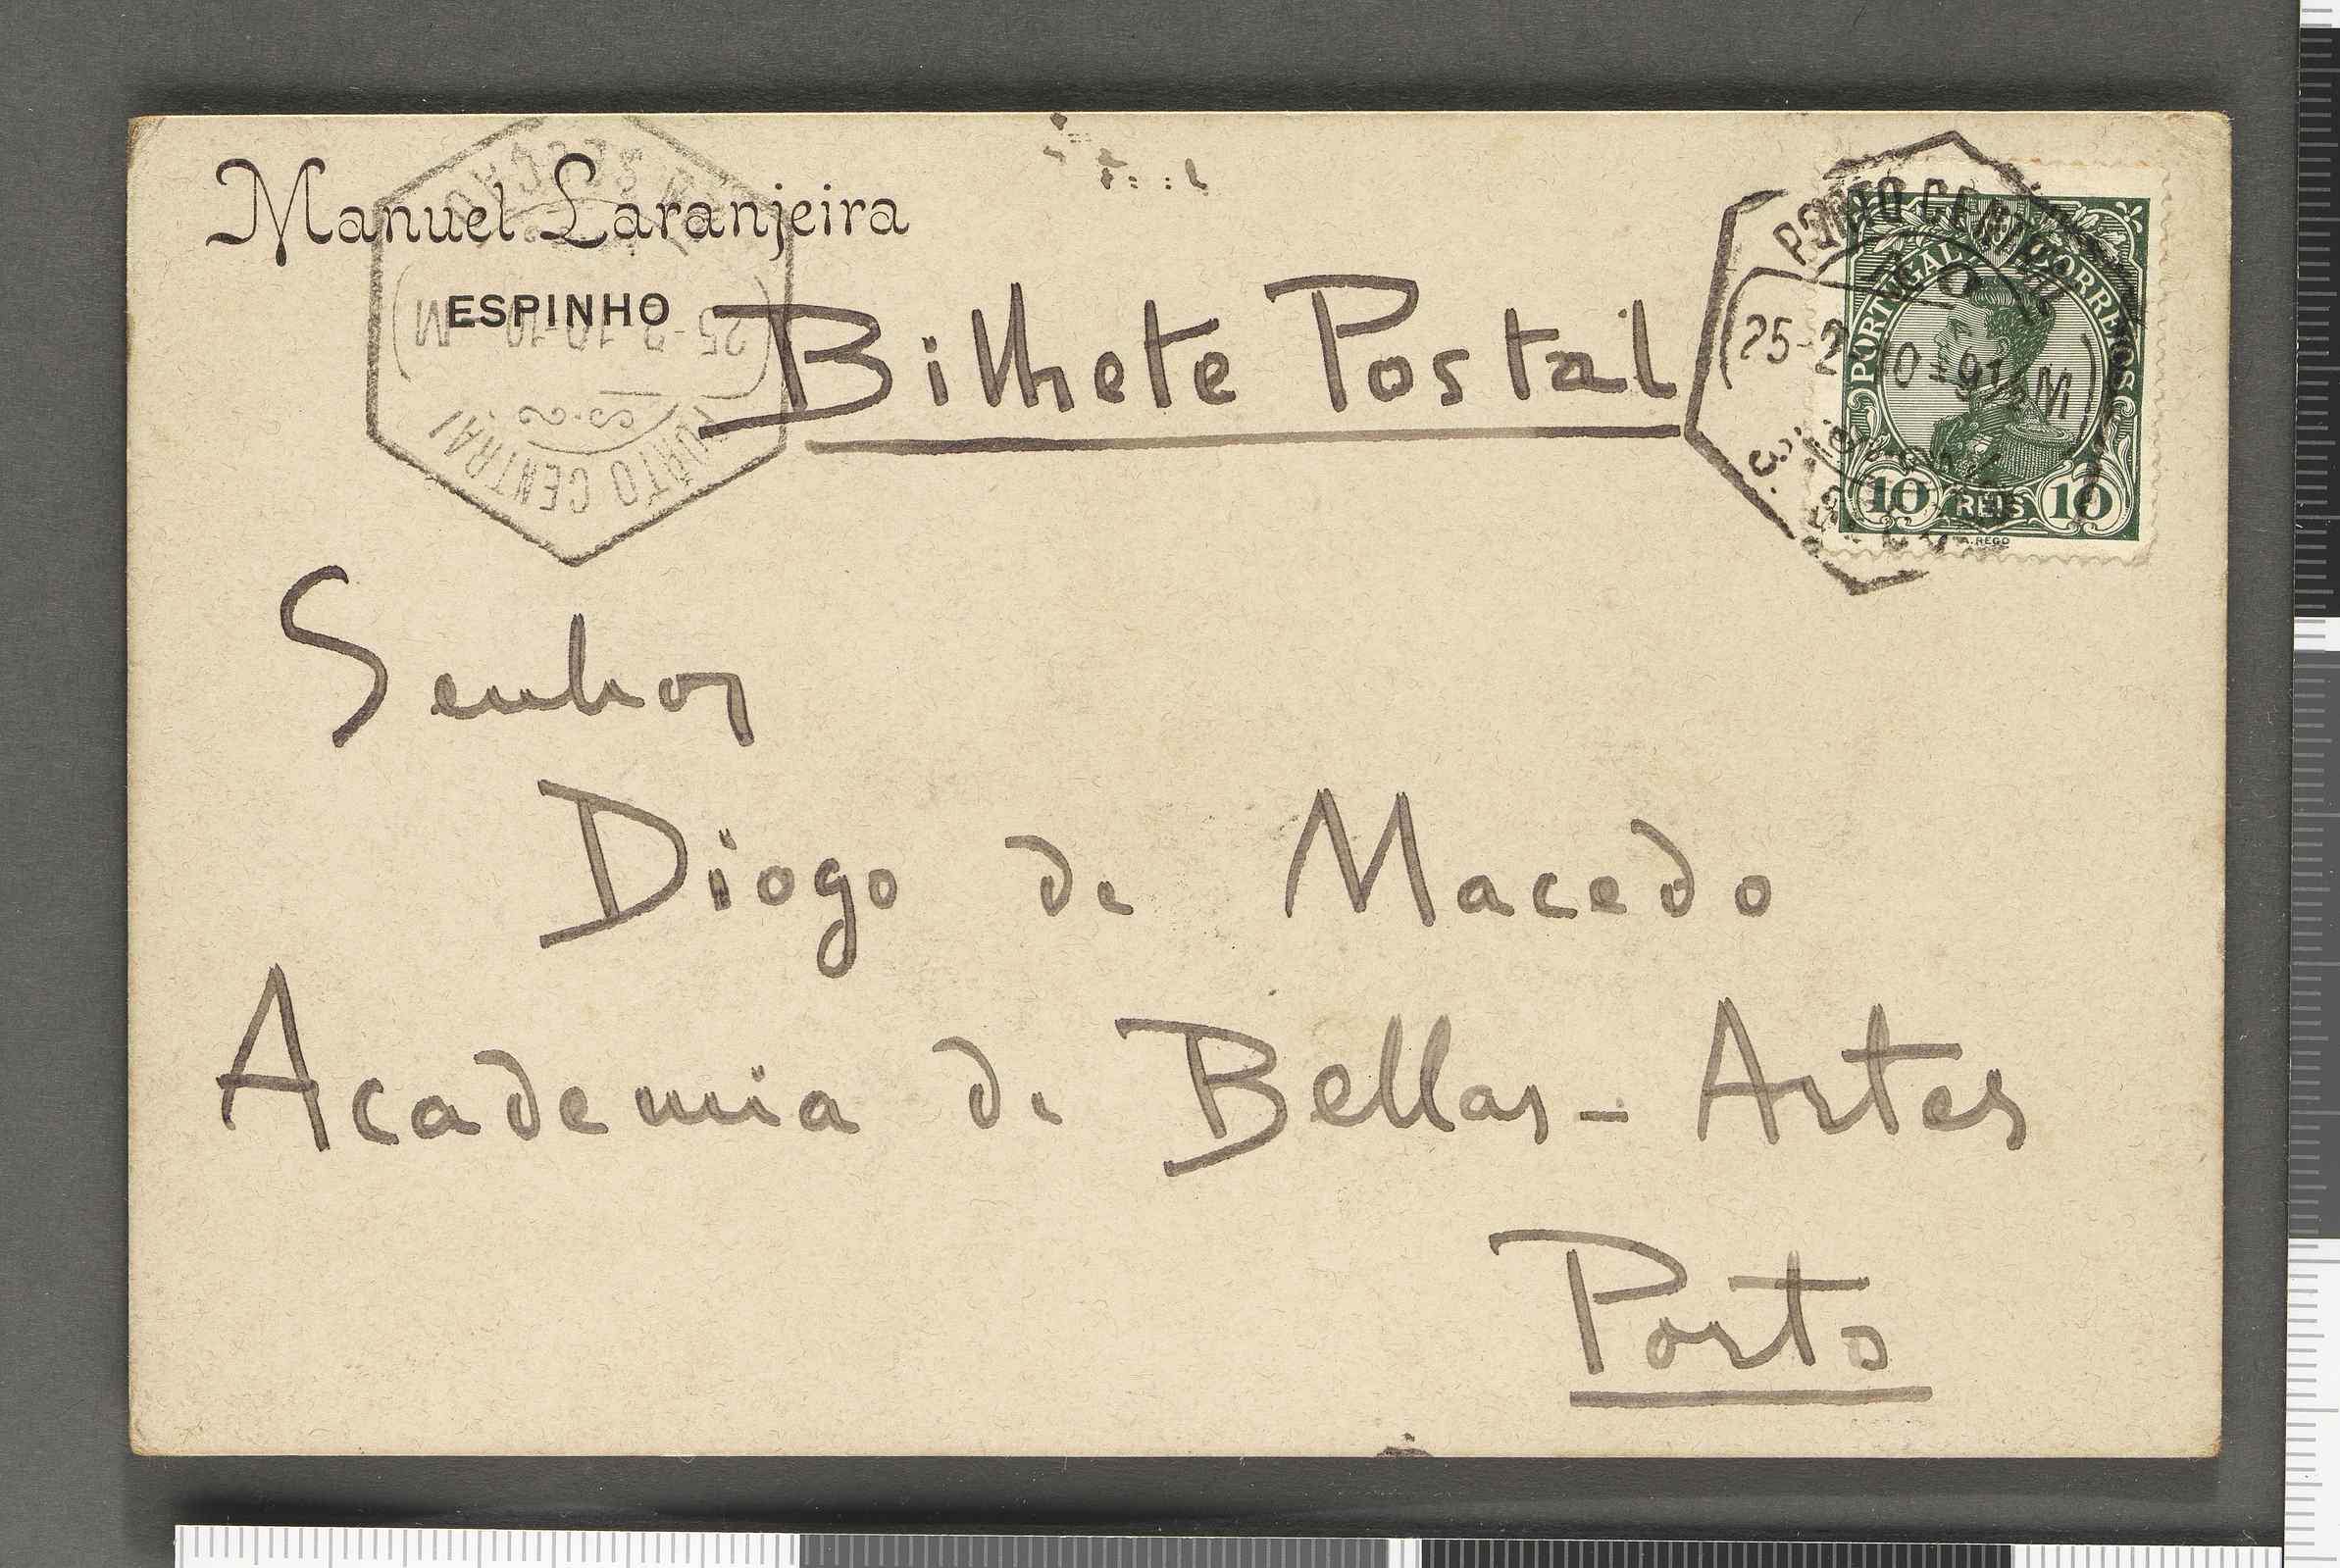 Manuel Laranjeira
ESPINHO
Bilhete Postal
PORTO CENTRAL
25-2
PORTO CENTRAL
S. 2
PORTUGAL CORREIOS
10 REIS 10
A. REGO
Senhor
Diogo de Macedo
Academia de Bellas-Artes
Porto